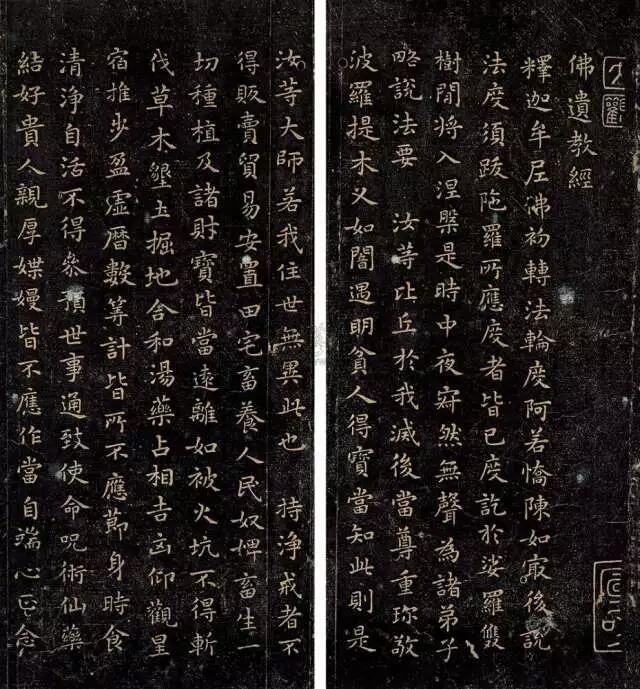 佛遺教經
釋迦牟尼佛初轉法輪度阿若憍陳如最後說
法度須跋陁羅所應度者皆已度訖於娑羅雙
樹間將入涅槃是時中夜寂然無聲為諸弟子
略說法要 汝等比丘於我滅後當尊重珎敬
波羅提木叉如闇遇明貧人得寶當知此則是
汝等大師若我住世無異此也 持淨戒者不
得販賣貿易安置田宅畜養人民奴婢畜生一
切種植及諸財寶皆當遠離如被火坑不得斬
伐草木墾土掘地合和湯藥占相吉凶仰觀星
宿推步盈虛曆數筭計皆所不應節身時食
清淨自活不得參預世事通致使命呪術仙藥
結好貴人親厚媟嫚皆不應作當自端心正念